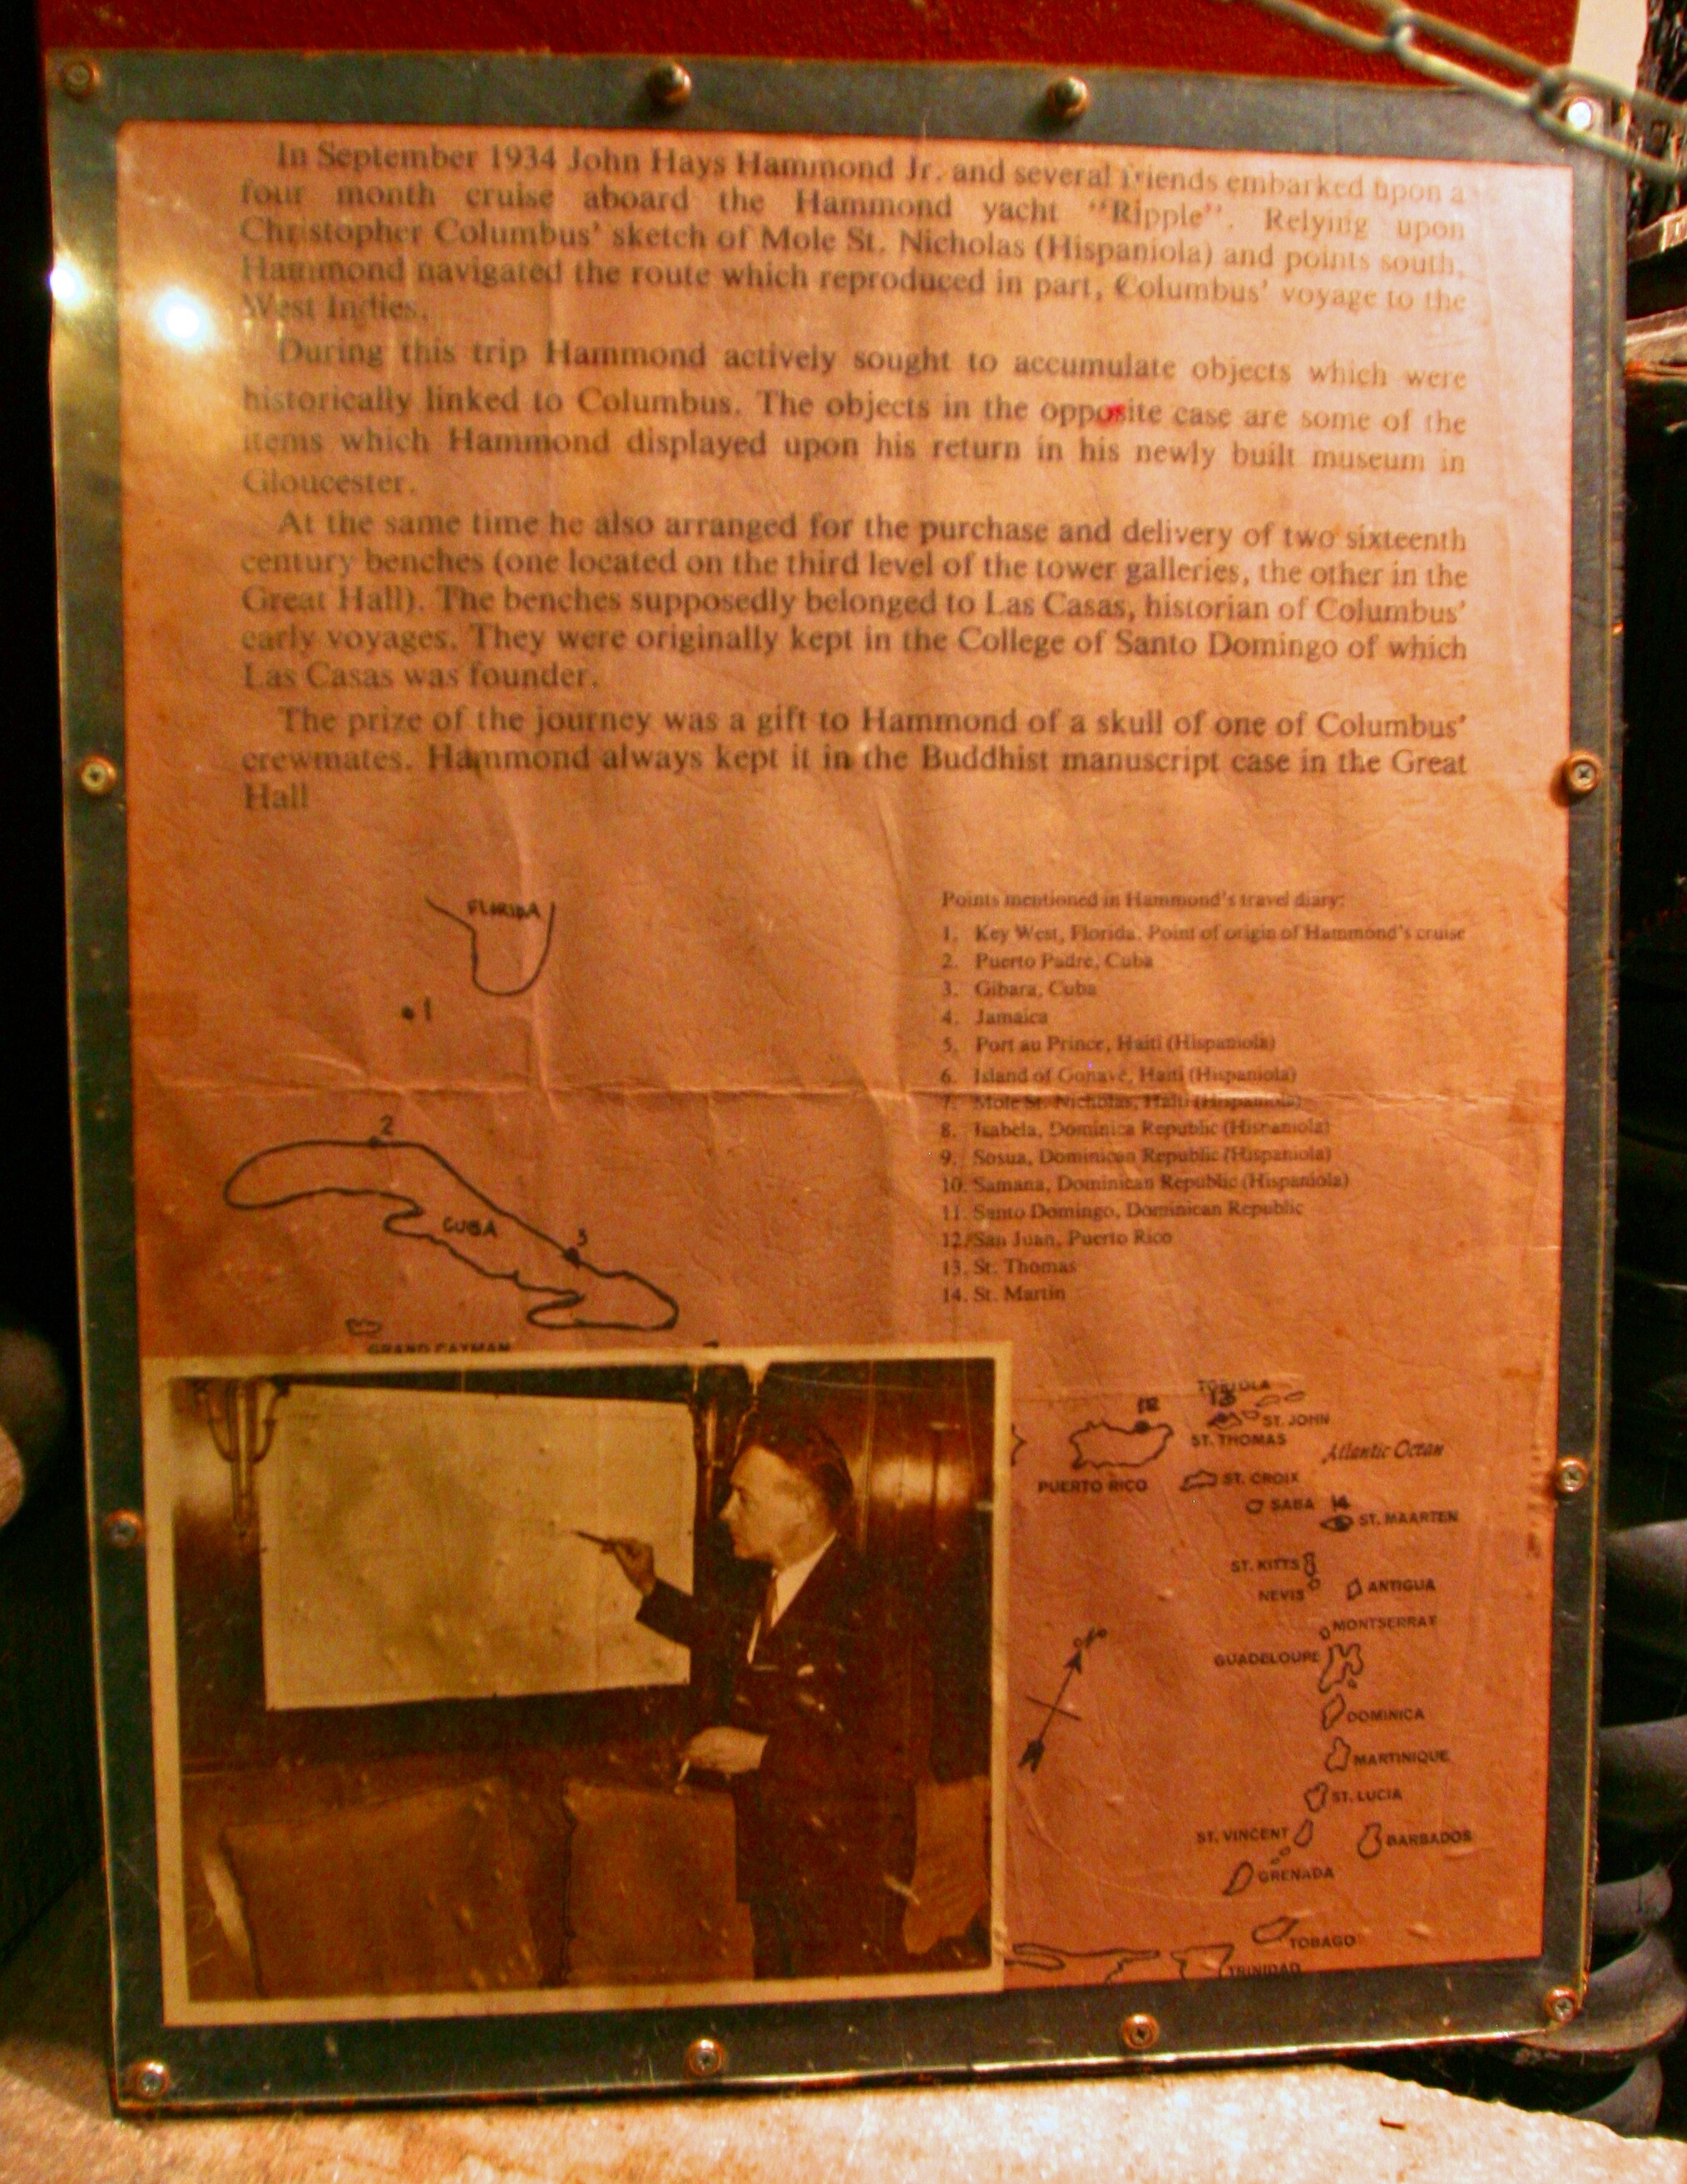 In September 1934 John Hays Hammond Jr. and several friends embarked upon a
four month cruise aboard the Hammond yacht "Ripple". Relying upon
Christopher Columbus' sketch of Mole St. Nicholas (Hispaniola) and points south,
Hammond navigated the route which reproduced in part, Columbus' voyage to the
West Indies.
During this trip Hammond actively sought to accumulate objects which were
historically linked to Columbus. The objects in the opposite case are some of the
items which Hammond displayed upon his return in his newly built museum in
Gloucester.
At the same time he also arranged for the purchase and delivery of two sixteenth
century benches (one located on the third level of the tower galleries, the other in the
Great Hall). The benches supposedly belonged to Las Casas, historian of Columbus'
early voyages. They were originally kept in the College of Santo Domingo of which
Las Casas was founder.
The prize of the journey was a gift to Hammond of a skull of one of Columbus'
crewmates. Hammond always kept it in the Buddhist manuscript case in the Great
Hall
Points mentioned in Hammond's travel diary:
1. Key West, Florida. Point of origin of Hammond's cruise
2. Puerto Padre, Cuba
3. Gibara, Cuba
4. Jamaica
5. Port au Prince, Haiti (Hispaniola)
6. Island of Gonave, Haiti (Hispaniola)
7. Mole St. Nicholas, Haiti (Hispaniola)
8. Isabela, Dominica Republic (Hispaniola)
9. Sosua, Dominican Republic (Hispaniola)
10. Samana, Dominican Republic (Hispaniola)
11. Santo Domingo, Dominican Republic
12. San Juan, Puerto Rico
13. St. Thomas
14. St. Martin
FLORIDA
1
2
CUBA
3
GRAND CAYMAN
TORTOLA
12
13
ST. JOHN
ST. THOMAS
Atlantic Ocean
PUERTO RICO
ST. CROIX
SABA
14
ST. MAARTEN
ST. KITTS
NEVIS
ANTIGUA
MONTSERRAT
GUADELOUPE
DOMINICA
MARTINIQUE
ST. LUCIA
ST. VINCENT
BARBADOS
GRENADA
TOBAGO
TRINIDAD